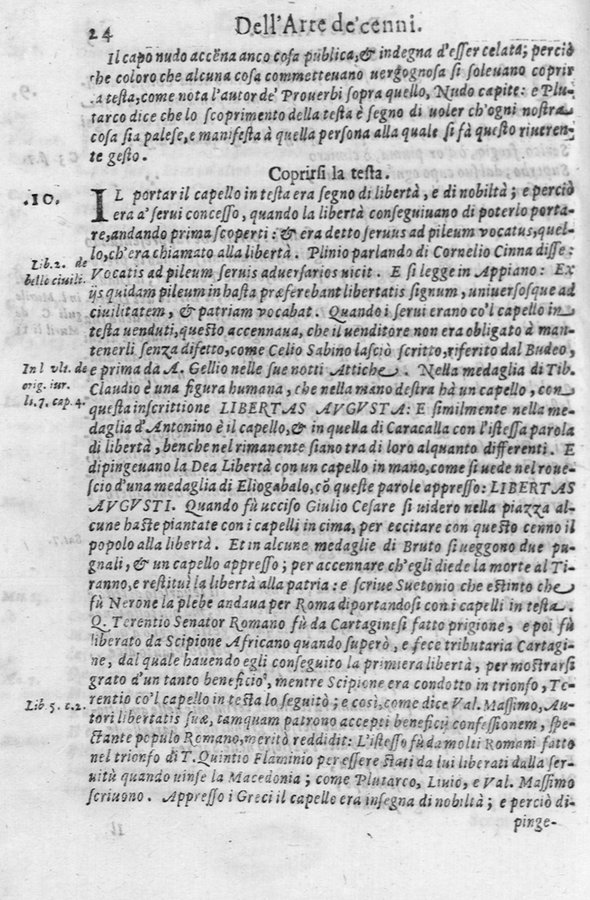 24 Dell'Arte de' cenni.
Il capo nudo accẽna anco cosa publica, & indegna d'esser celata; perciò
che coloro che alcuna cosa commetteuano uergognosa si soleuano coprir
la testa, come nota l'autor de' Prouerbi sopra quello, Nudo capite: e Plu-
tarco dice che lo scoprimento della testa è segno di uoler ch'ogni nostra
cosa sia palese, e manifesta à quella persona alla quale si fà questo riueren-
te gesto.
Coprirsi la testa.
.10. IL portar il capello in testa era segno di libertà, e di nobiltà; e perciò
era a' serui concesso, quando la libertà conseguiuano di poterlo porta-
re, andando prima scoperti: & era detto seruus ad pileum vocatus, quel-
lo, ch'era chiamato alla libertà. Plinio parlando di Cornelio Cinna disse:
Lib. 2. de
belle ciuili.
Vocatis ad pileum seruis aduersarios uicit. E si legge in Appiano: Ex
ijs quidam pileum in hasta præferebant libertatis signum, uniuersosque ad
ciuilitatem, & patriam vocabat. Quando i serui erano co'l capello in
testa uenduti, questo accennaua, che il uenditore non era obligato à man-
tenerli senza difetto, come Celio Sabino lasciò scritto, riferito dal Budeo,
In l vlt. de
orig. iur.
li. 7. cap. 4.
e prima da A. Gellio nelle sue notti Attiche. Nella medaglia di Tib.
Claudio è una figura humana, che nella mano destra hà un capello, con
questa inscrittione LIBERTAS AVGVSTA: E similmente nella me-
daglia d'Antonino è il capello, & in quella di Caracalla con l'istessa parola
di libertà, benche nel rimanente siano tra di loro alquanto differenti. E
dipingeuano la Dea Libertà con un capello in mano, come si uede nel roue-
scio d'una medaglia di Eliogabalo, cõ queste parole appresso: LIBERTAS
AVGVSTI. Quando fù ucciso Giulio Cesare si uidero nella piazza al-
cune haste piantate con i capelli in cima, per eccitare con questo cenno il
popolo alla libertà. Et in alcune medaglie di Bruto si ueggono due pu-
gnali, & un capello appresso; per accennare ch'egli diede la morte al Ti-
ranno, e restituì la libertà alla patria: e scriue Suetonio che estinto che
fù Nerone la plebe andaua per Roma diportandosi con i capelli in testa.
Q. Terentio Senator Romano fù da Cartaginesi fatto prigione, e poi fù
liberato da Scipione Africano quando superò, e fece tributaria Cartagi-
ne, dal quale hauendo egli conseguito la primiera libertà, per mostrarsi
grato d'un tanto beneficio, mentre Scipione era condotto in trionfo, Te-
Lib. 5. c. 2.
rentio co'l capello in testa lo seguitò; e così, come dice Val. Massimo, Au-
tori libertatis suæ, tamquam patrono accepti beneficij confessionem, spe-
ctante populo Romano, meritò reddidit: L'istesso fù da molti Romani fatto
nel trionfo di T. Quintio Flaminio per essere stati da lui liberati dalla ser-
uitù quando uinse la Macedonia; come Plutarco, Liuio, e Val. Massimo
scriuono. Appresso i Greci il capello era insegna di nobiltà; e perciò di-
pinge-